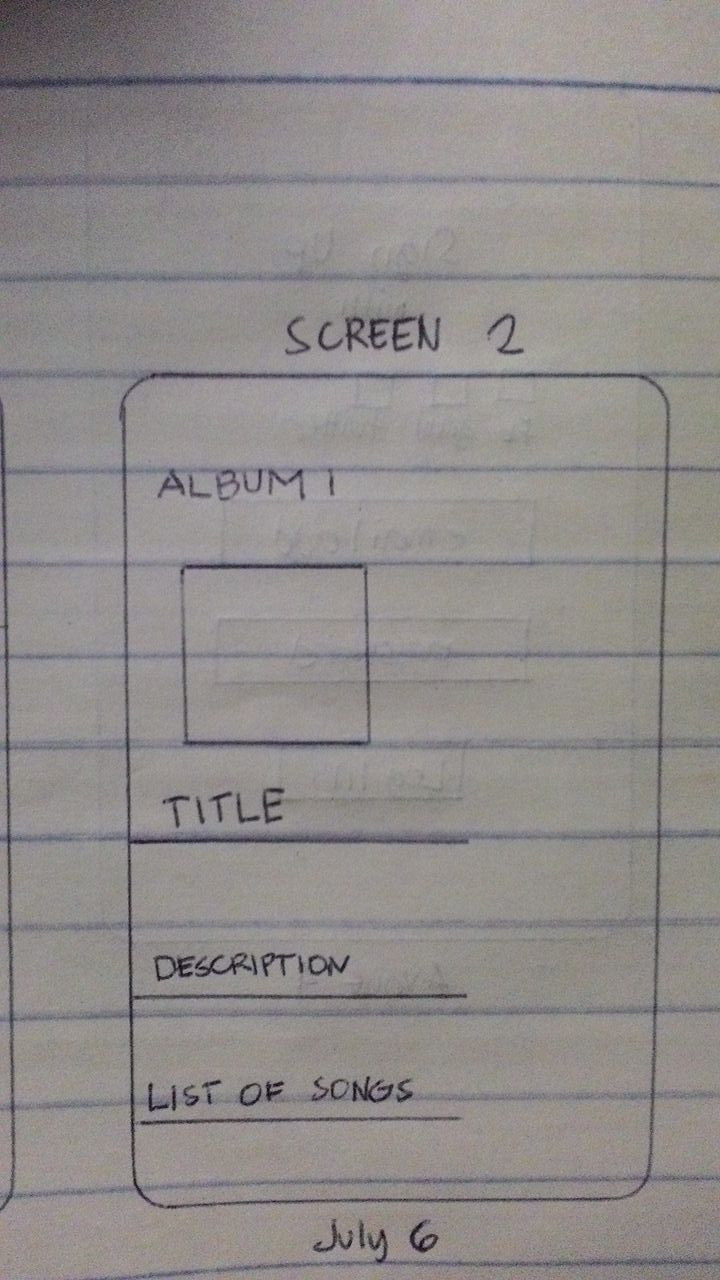 SCREEN 2
ALBUM 1
TITLE
DESCRIPTION
LIST OF SONGS
July 6